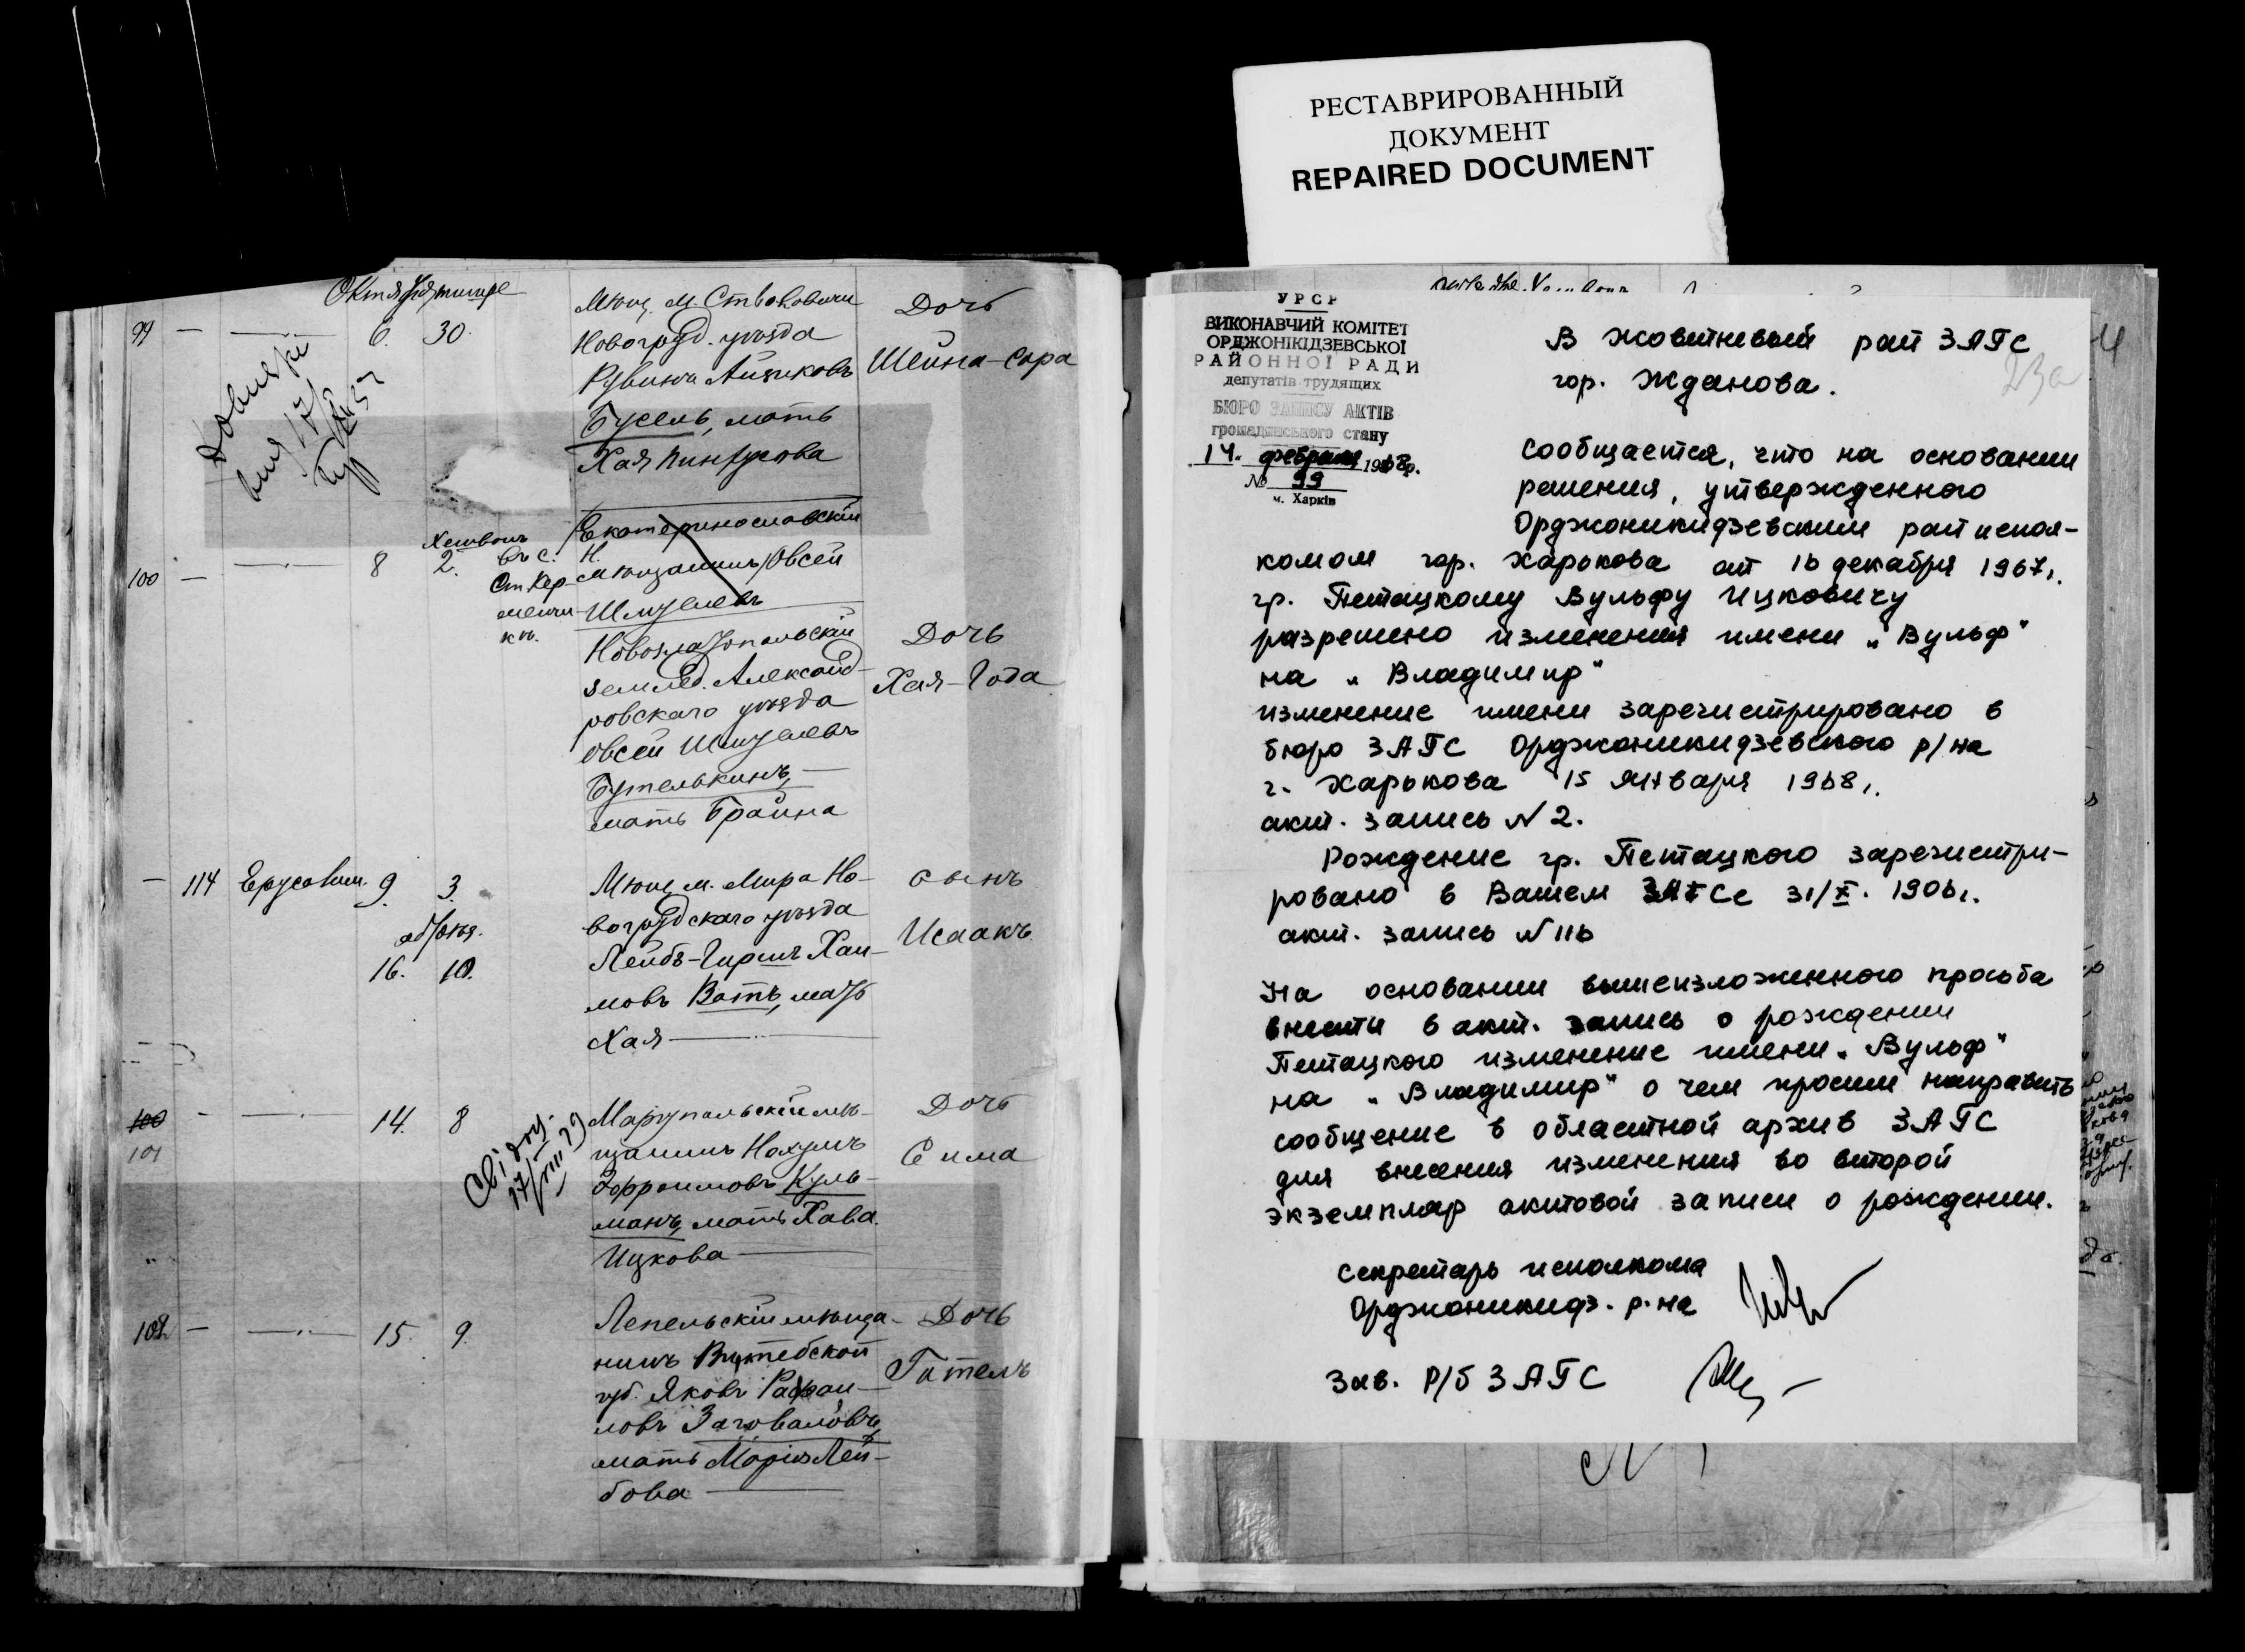 РЕСТАВРИРОВАННЫЙ
ДОКУМЕНТ
REPAIRED DOCUMENT
99
6. 30.
Мѣщ. м. Стволовичи
Новогруд. уѣзда
Рувинъ Айзиковъ
Бусель, мать
Хая Пинхусова
Дочь
Шейна-Сара
100
8 2.
въ с.
Ст. Кер-
менчи-
кѣ.
Екатеринославскій
мѣщанинъ Овсей
Шмуелевъ
Новозлатопольскій
землед. Александ-
ровскаго уѣзда
Овсей Шмуелевъ
Бутелькинъ,
мать Брайна
Дочь
Хая-Года
114 Ерусалим. 9. 3.
16. 10.
Мѣщ. м. Мира Но-
вогрудскаго уѣзда
Лейба-Гиршъ Хаи-
мовъ Вотъ, мать
Хая
Сынъ
Исаакъ
100
101
14. 8
Маріупольскій мѣ-
щанинъ Нохумъ
Эфроимовъ Куль-
манъ, мать Хава
Ицкова
Дочь
Сима
102
15. 9.
Лепельскій мѣща-
нинъ Витебской
губ. Яковъ Рафаи-
ловъ Заговаловъ,
мать Марія Лей-
бова
Дочь
Гителъ
УРСР
ВИКОНАВЧИЙ КОМІТЕТ
ОРДЖОНІКІДЗЕВСЬКОЇ
РАЙОННОЇ РАДИ
депутатів трудящих
БЮРО ЗАПИСУ АКТІВ
громадянського стану
14. февраля 1968р.
№ 99
м. Харків
В Жовтневый рай ЗАГС
гор. Жданова.
Сообщается, что на основании
решения, утвержденного
Орджоникидзевским райиспол-
комом гор. Харькова от 16 декабря 1967г.
гр. Петацкому Вульфу Ицковичу
разрешено изменения имени „Вульф"
на „Владимир"
Изменение имени зарегистрировано в
бюро ЗАГС Орджоникидзевского р/на
г. Харькова 15 января 1968г.
акт. запись N 2.
Рождение гр. Петацкого зарегистри-
ровано в Вашем ЗАГСе 31/X. 1906г.
акт. запись N 116
На основании вышеизложенного просьба
внести в акт. запись о рождении
Петацкого изменение имени „Вульф"
на „Владимир" о чем просим направить
сообщение в областной архив ЗАГС
для внесения изменения во второй
экземпляр актовой записи о рождении.
Секретарь исполкома
Орджоникидз. р-на
Зав. р/б ЗАГС